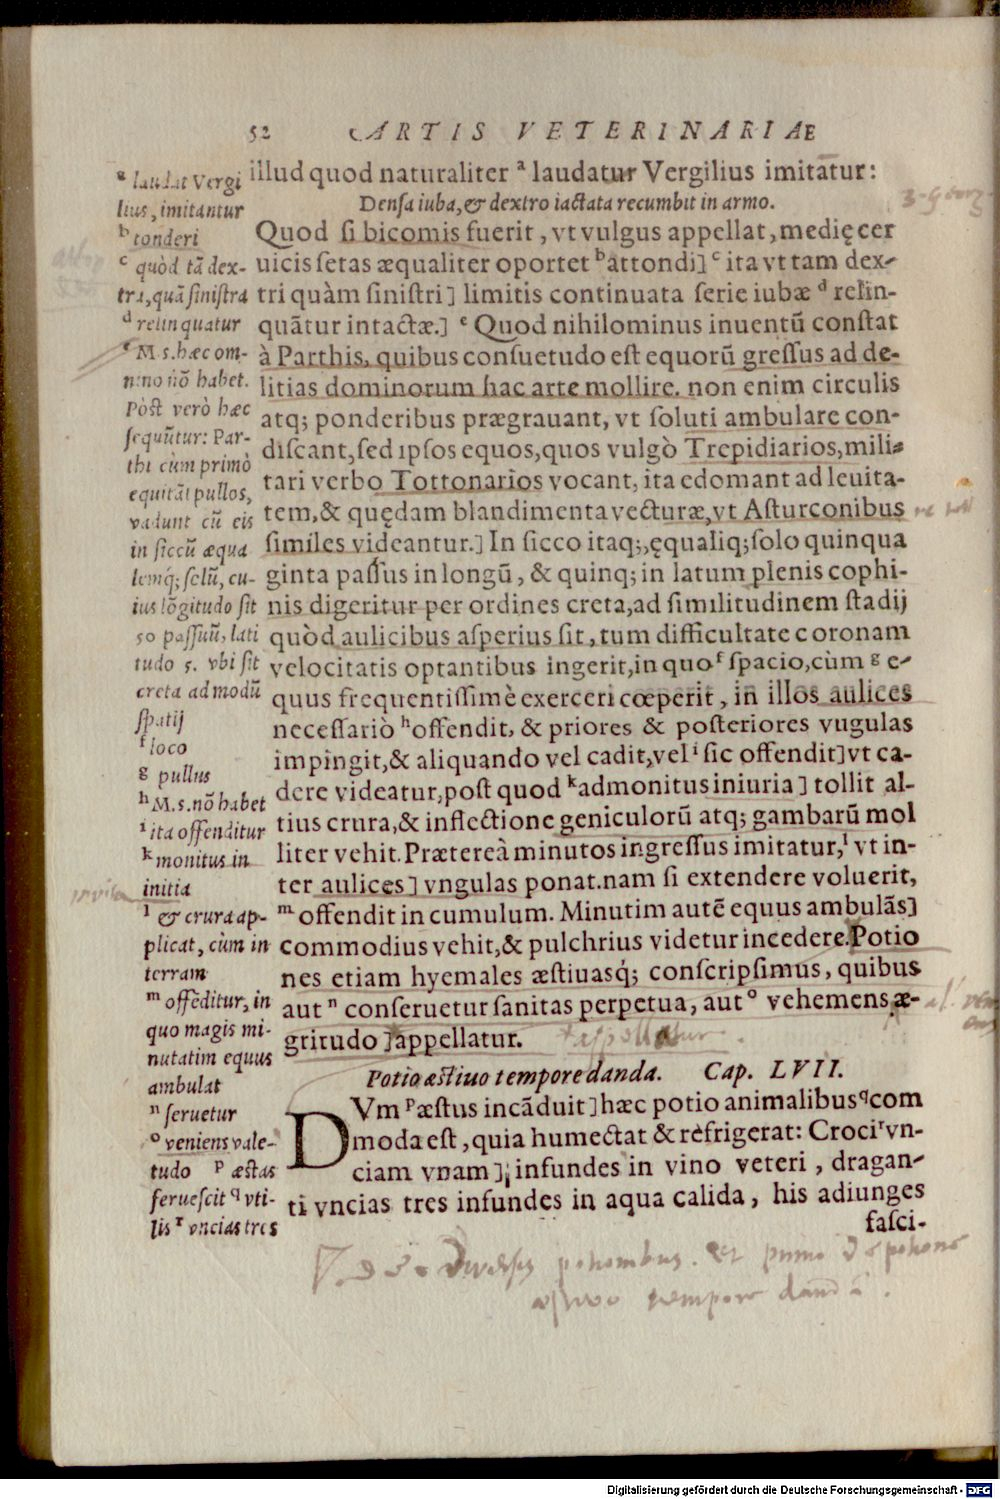 52 ARTIS VETERINARIAE
illud quod naturaliter ᵃ laudatur Vergilius imitātur:
Densa iuba, & dextro iactata recumbit in armo.
Quod si bicomis fuerit, vt vulgus appellat, medię cer
uicis setas æqualiter oportet ᵇ attondi] ᶜ ita vt tam dex-
tri quàm sinistri] limitis continuata serie iubæ ᵈ relin-
quātur intactæ.] ᵉ Quod nihilominus inuentū constat
à Parthis, quibus consuetudo est equorū gressus ad de-
litias dominorum hac arte mollire. non enim circulis
atq; ponderibus prægrauant, vt soluti ambulare con-
discant, sed ipsos equos, quos vulgò Trepidiarios, mili-
tari verbo Tottonarios vocant, ita edomant ad leuita-
tem, & quędam blandimenta vecturæ, vt Asturconibus
similes videantur.] In sicco itaq;, ęqualiq; solo quinqua
ginta passus in longū, & quinq; in latum plenis cophi-
nis digeritur per ordines creta, ad similitudinem stadij
quòd aulicibus asperius sit, tum difficultate coronam
velocitatis optantibus ingerit, in quo ᶠ spacio, cùm ᵍ e-
quus frequentissimè exerceri cœperit, in illos aulices
necessariò ʰ offendit, & priores & posteriores vugulas
impingit, & aliquando vel cadit, vel ⁱ sic offendit] vt ca-
dere videatur, post quod ᵏ admonitus iniuria] tollit al-
tius crura, & inflectione geniculorū atq; gambarū mol
liter vehit. Prætereà minutos ingressus imitatur, ˡ vt in-
ter aulices] vngulas ponat. nam si extendere voluerit,
ᵐ offendit in cumulum. Minutim autē equus ambulās]
commodius vehit, & pulchrius videtur incedere. Potio
nes etiam hyemales æstiuasq́; conscripsimus, quibus
aut ⁿ conseruetur sanitas perpetua, aut ᵒ vehemens æ-
gritudo] appellatur.
Potio æstiuo tempore danda. Cap. LVII.
DVm ᵖ æstus incāduit] hæc potio animalibus ᑫ com
moda est, quia humectat & rèfrigerat: Croci ʳ vn-
ciam vnam], infundes in vino veteri, dragan-
ti vncias tres infundes in aqua calida, his adiunges
fasci-
ᵃ laudat Vergi
lius, imitantur
ᵇ tonderi
ᶜ quòd tā dex-
tra, quā sinistra
ᵈ relinquatur
ᵉ M s. hæc om-
nino nō habet.
Pòst verò hæc
sequūtur: Par-
thi cùm primò
equitāt pullos,
vadunt cū eis
in siccū æqua
lemq́; solū, cu-
ius lōgitudo sit
50 passuū, lati
tudo 5. vbi sit
creta ad modū
spatij
ᶠ loco
ᵍ pullus
ʰ M. s. nō habet
ⁱ ita offenditur
ᵏ monitus in
initia
ˡ & crura ap-
plicat, cùm in
terram
ᵐ offēditur, in
quo magis mi-
nutatim equus
ambulat
ⁿ seruetur
ᵒ veniens vale-
tudo ᵖ æstas
feruescit ᑫ vti-
lis ʳ vncias tres
3. Georg.
iniuria
appellatur
De Diuersis potionibus. et primo de potione
æstiuo tempore danda.
Digitalisierung gefördert durch die Deutsche Forschungsgemeinschaft - DFG